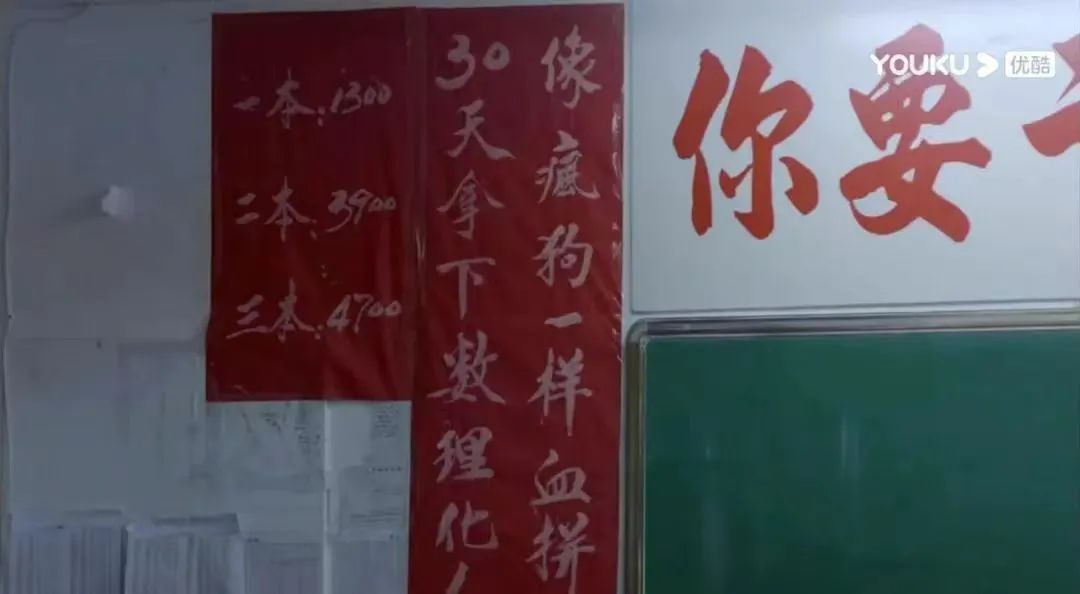 一本:1300
二本:3900
三本:4700
30天拿下数理化
像瘋狗一样血拼
你要
YOUKU 优酷